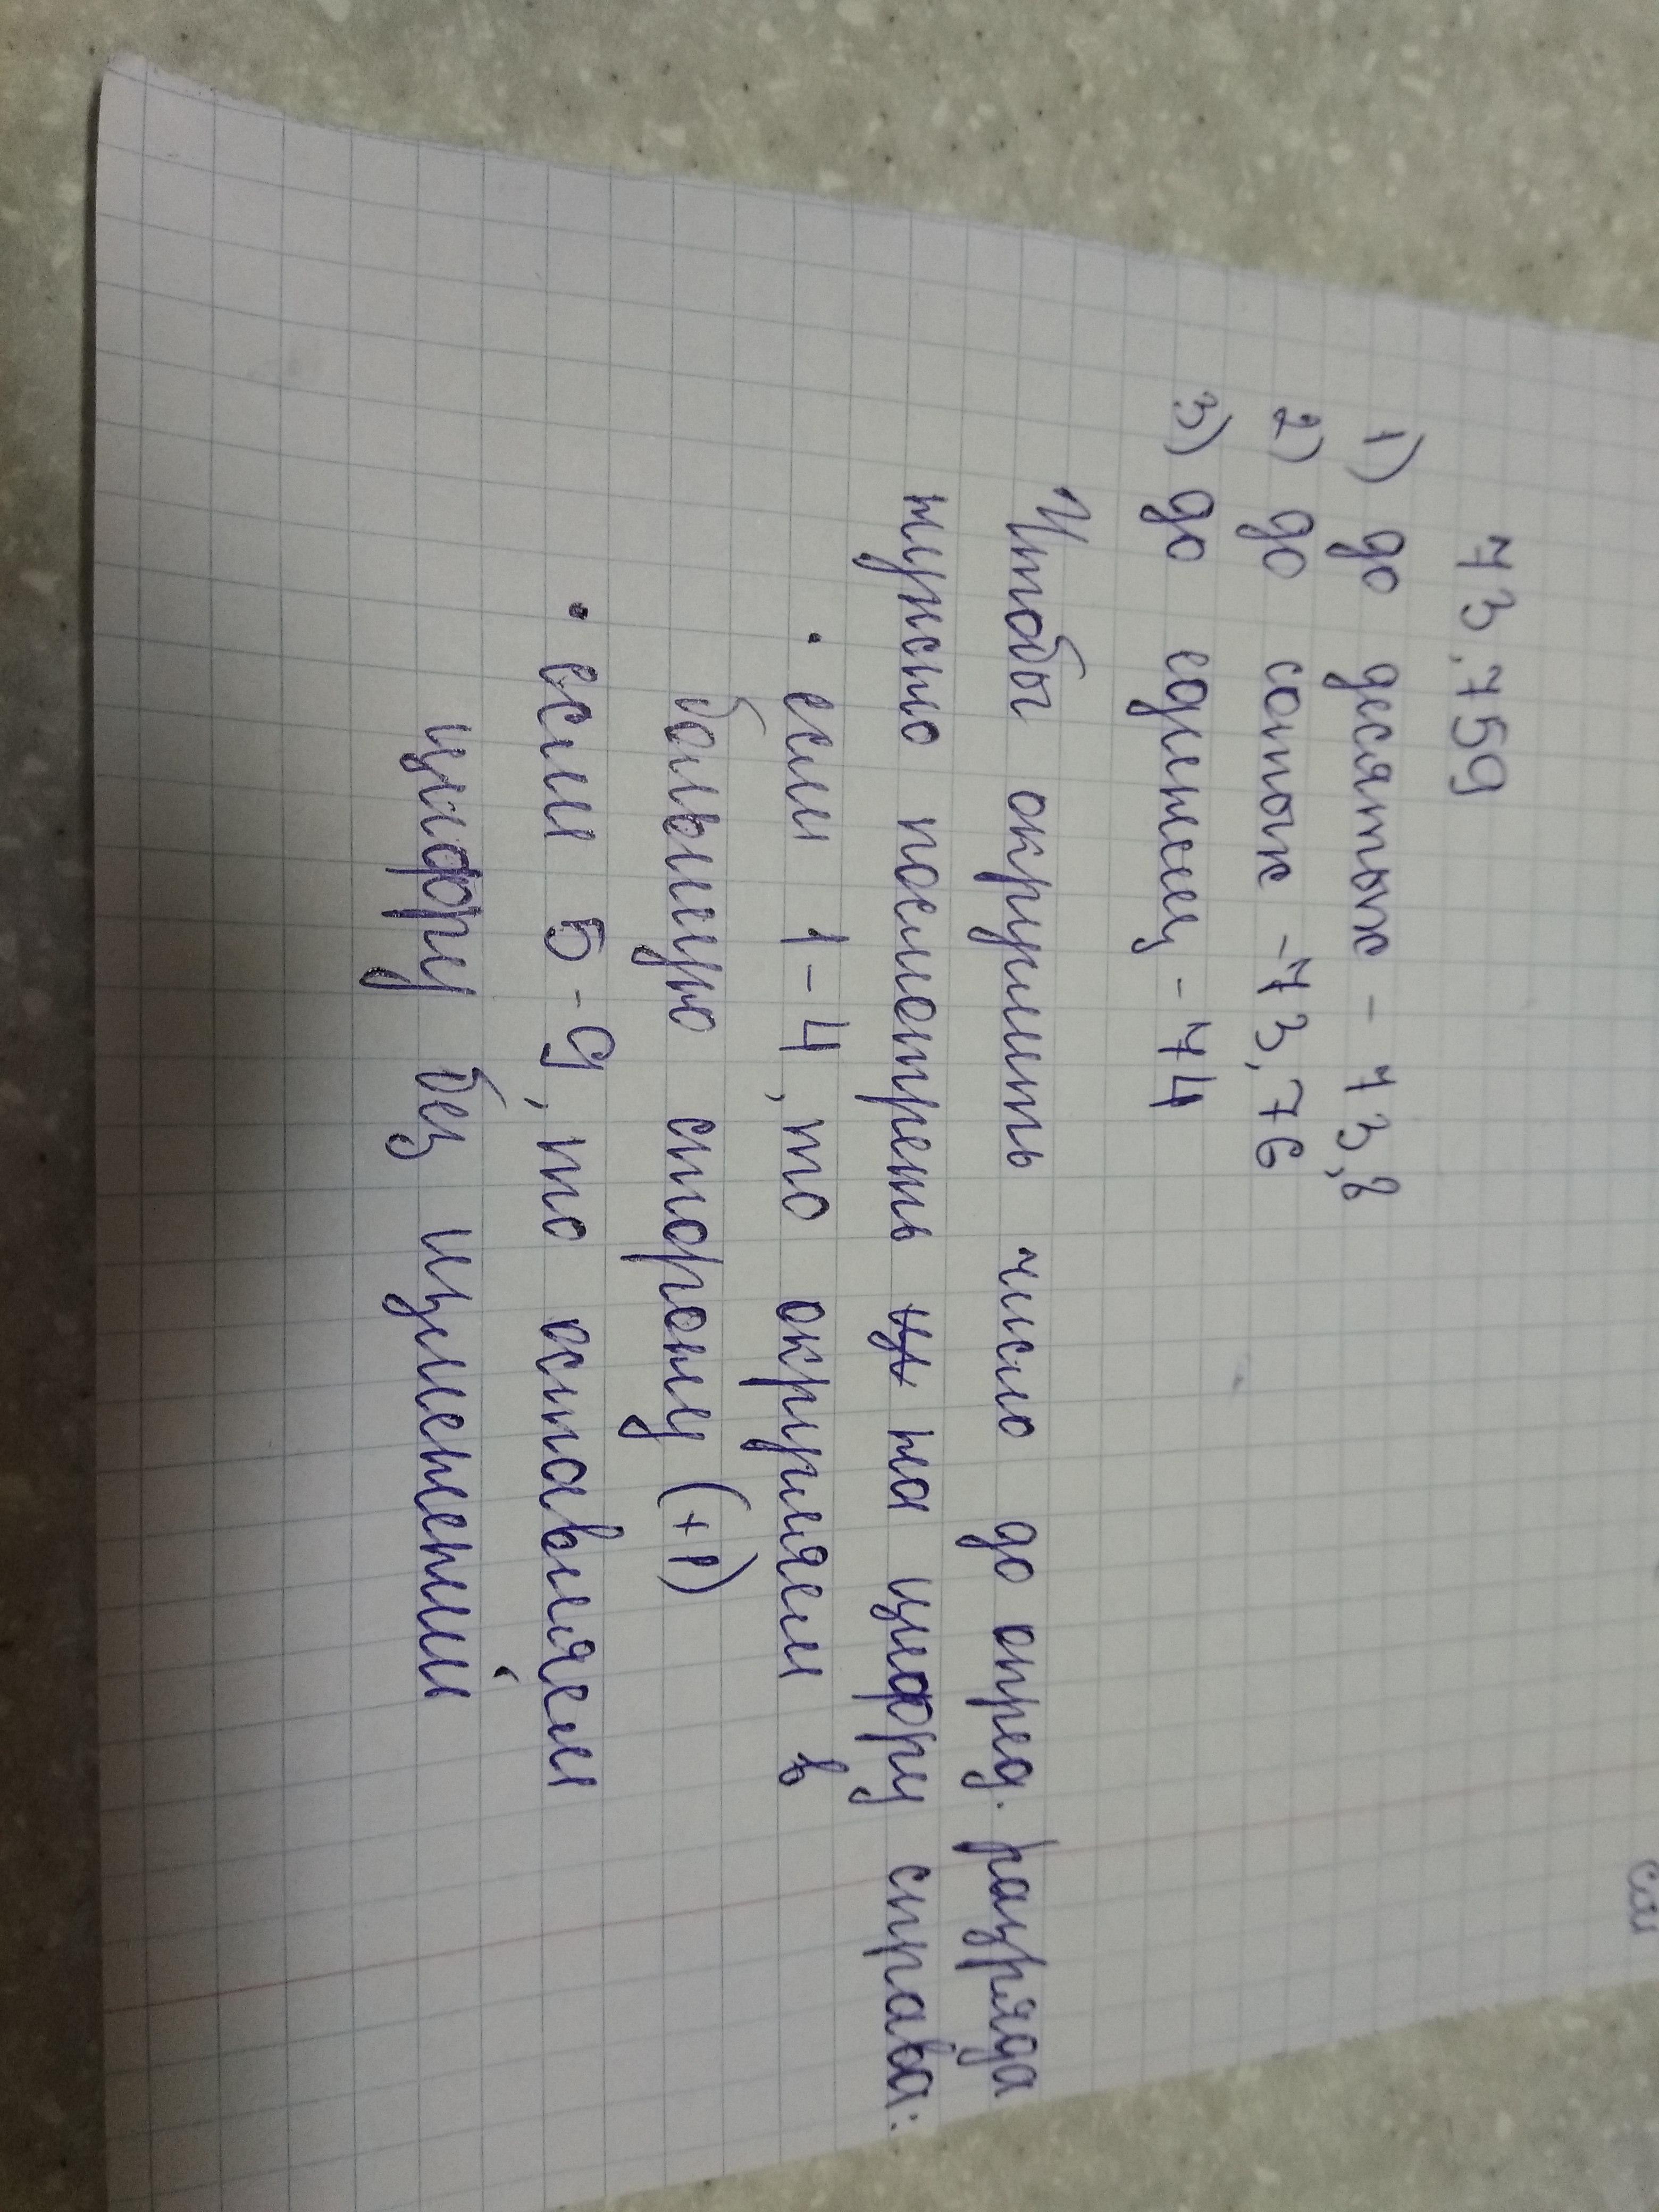 73,759
1) до десятых - 73,8
2) до сотых - 73,76
3) до единиц - 74
Чтобы округлить число до опред. разряда
нужно посмотреть на цифру справа:
• если 1-4, то округляем в
большую сторону (+1)
• если 5-9, то оставляем
цифру без изменений